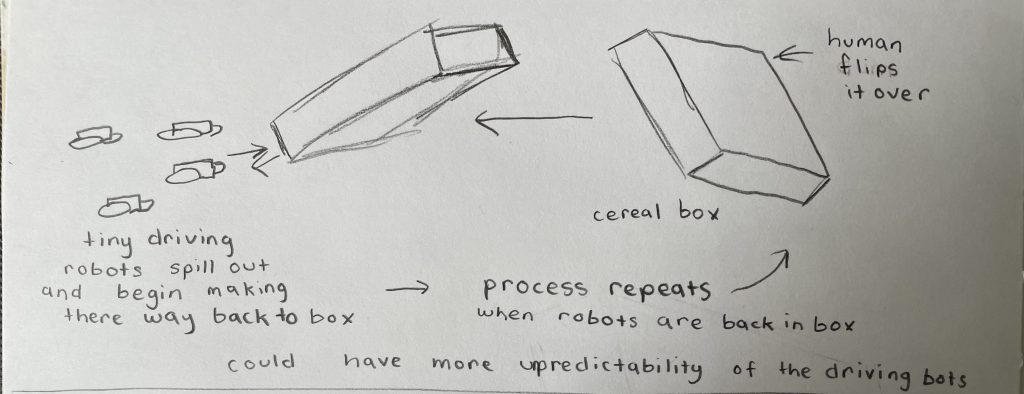 human
flips
it over
cereal box
tiny driving
robots spill out
and begin making
there way back to box
process repeats
when robots are back in box
could have more upredictability of the driving bots